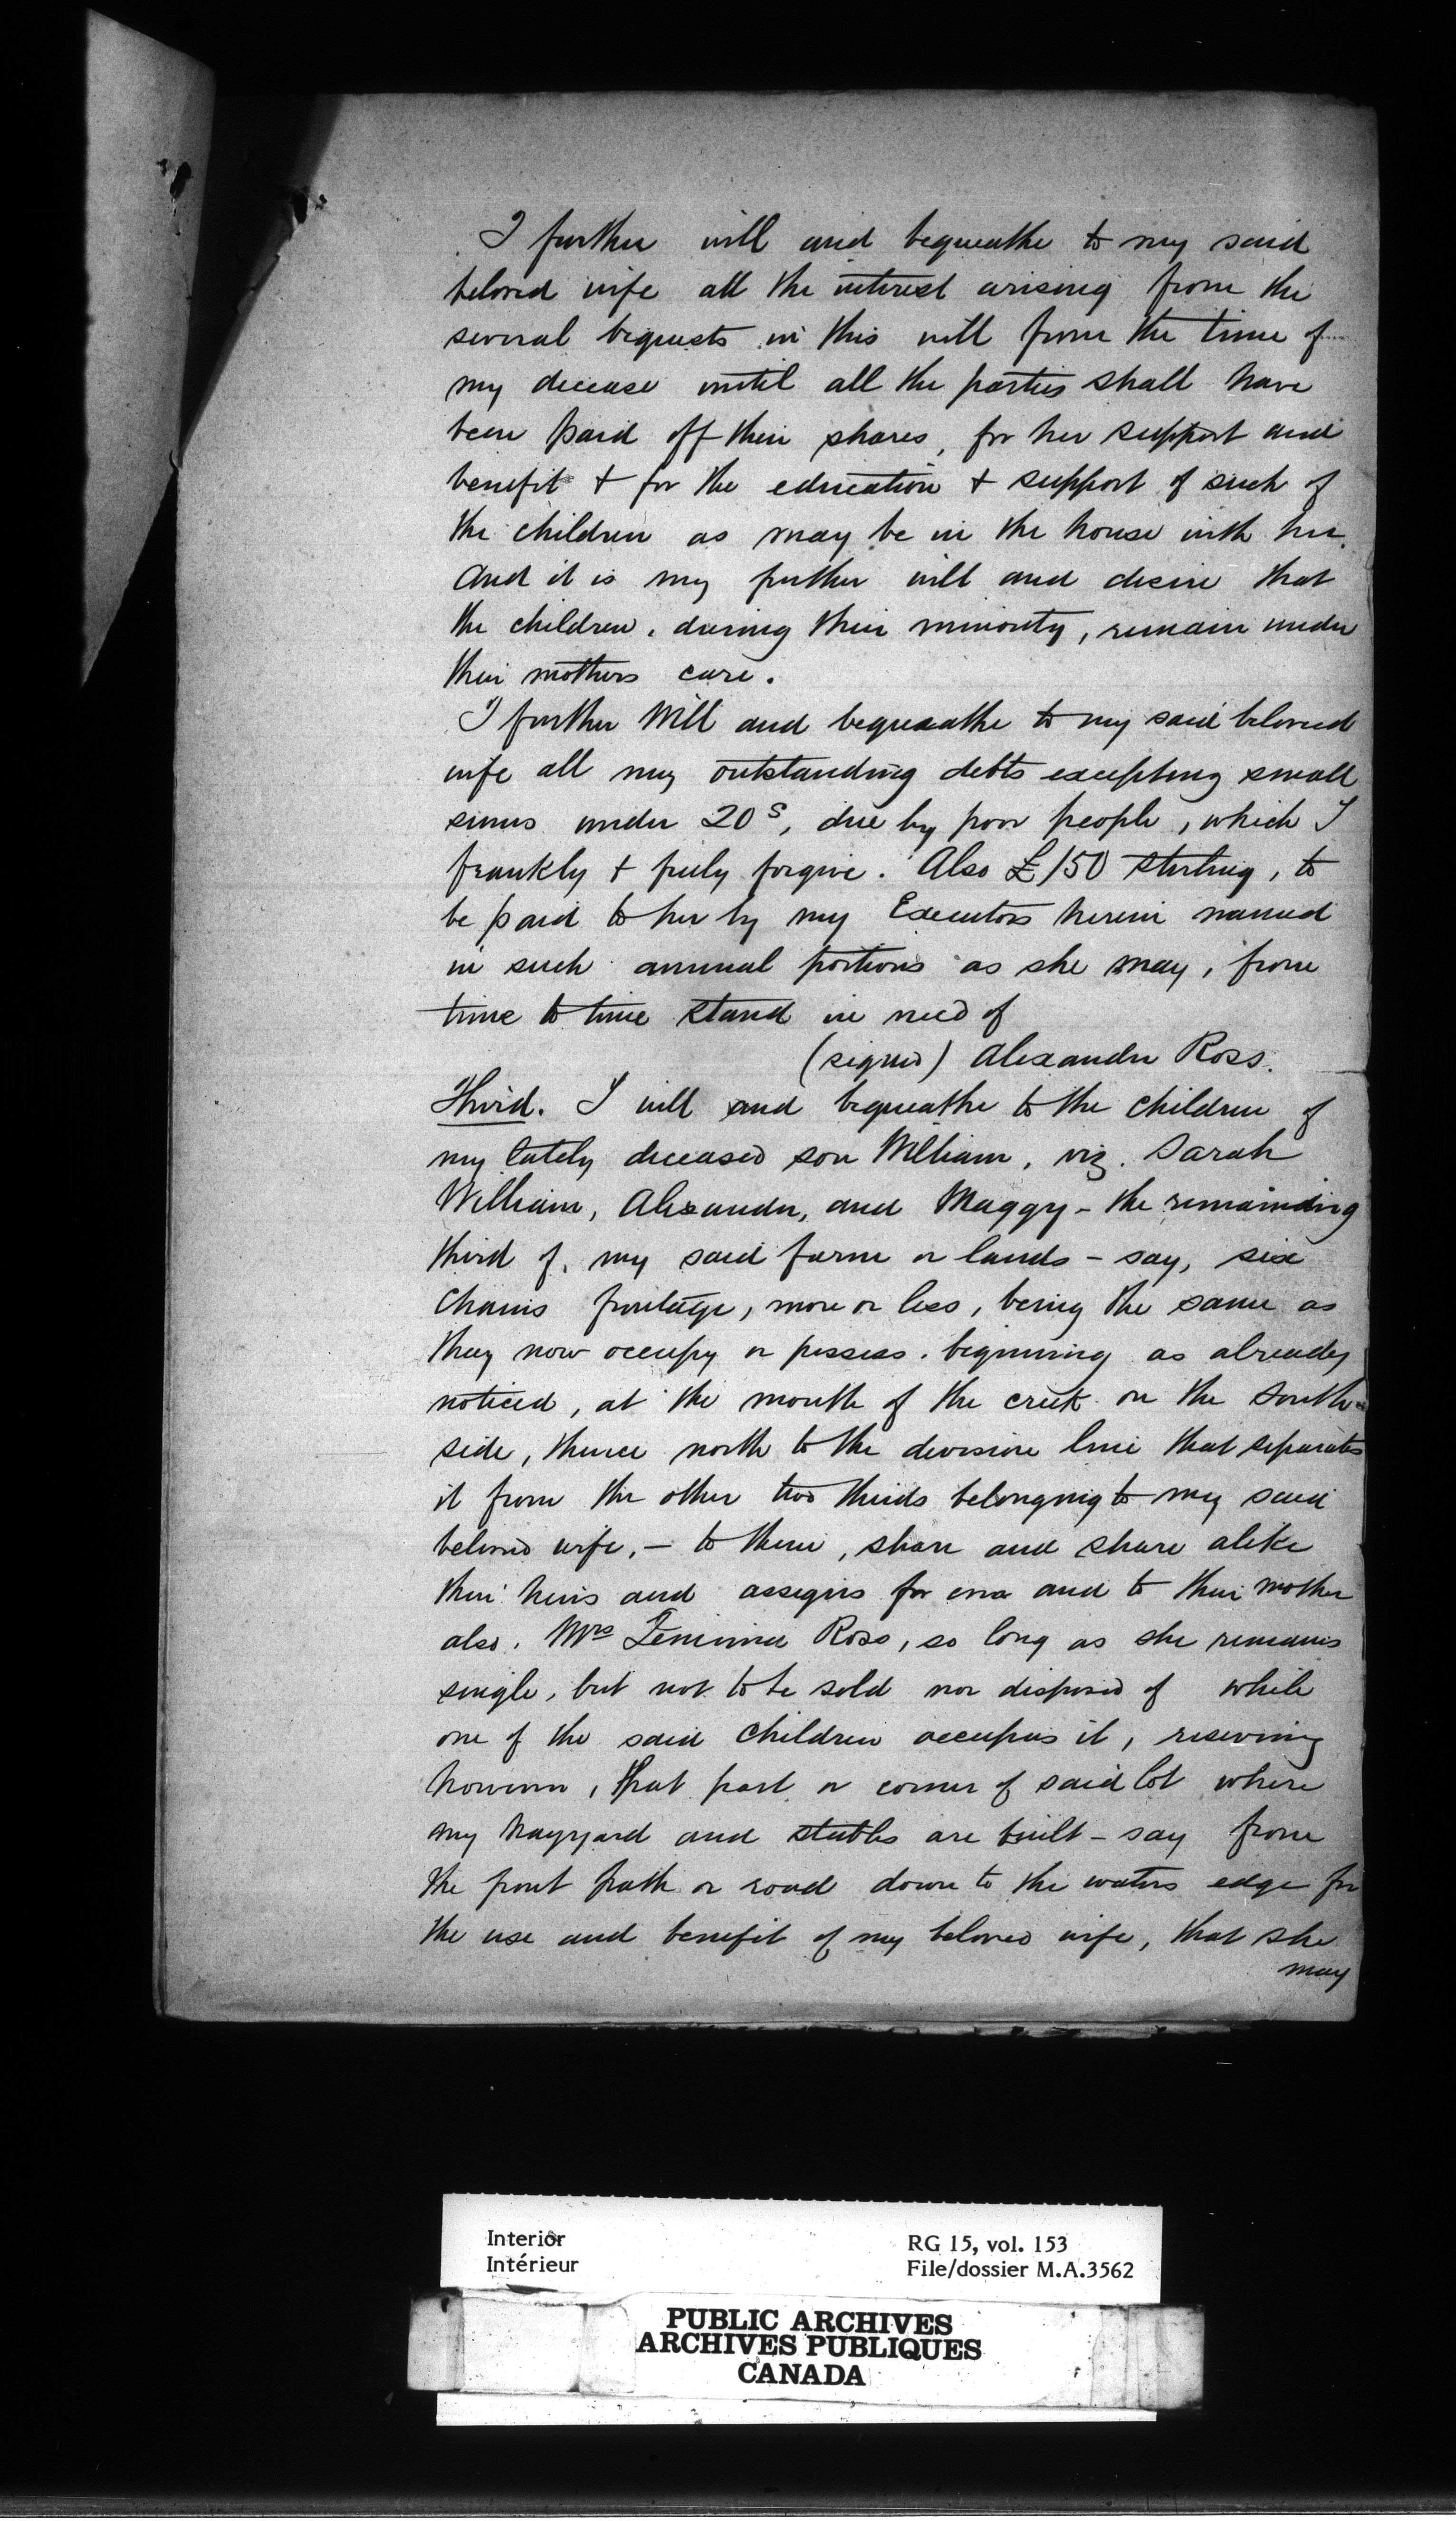 I further will and bequeathe to my said
beloved wife all the interest arising from the
several bequests in this will from the time of
my decease until all the parties shall have
been paid off their shares, for her support and
benefit + for the education + support of such of
the children as may be in the house with her.
And it is my further will and desire that
the children, during their minority, remain under
their mothers care.
I further Will and bequeathe to my said beloved
wife all my outstanding debts excepting small
sums under 20 s, due by poor people, which I
frankly + freely forgive. Also £150 sterling, to
be paid to her by my Executors herein named
in such annual portions as she may, from
time to time stand in need of
(signed) Alexander Ross.
Third. I will and bequeathe to the children of
my lately deceased son William, viz. Sarah
William, Alexander, and Maggy - the remainding
third of, my said farm or lands - say, six
Chains frontage, more or less, being the same as
they now occupy or possess. beginning as already
noticed, at the mouth of the creek on the south-
side, thence north to the devision line that separates
it from the other two thirds belonging to my said
beloved wife, - to them, share and share alike
their heirs and assigns for ever and to their mother
also. Mrs Jemima Ross, so long as she remains
single, but not to be sold nor disposed of while
one of the said children occupies it, reserving
however, that part or corner of said lot where
my hayyard and stables are built - say from
the front path or road down to the waters edge for
the use and benefit of my beloved wife, that she
may
Interior
Intérieur
RG 15, vol. 153
File/dossier M.A.3562
PUBLIC ARCHIVES
ARCHIVES PUBLIQUES
CANADA